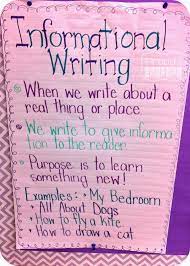 Informational
Writing
When we write about a
real thing or place
We write to give informa
tion to the reader
Purpose is to learn
something new!
Examples: • My Bedroom
• All About Dogs
• How to fly a kite
• How to draw a cat